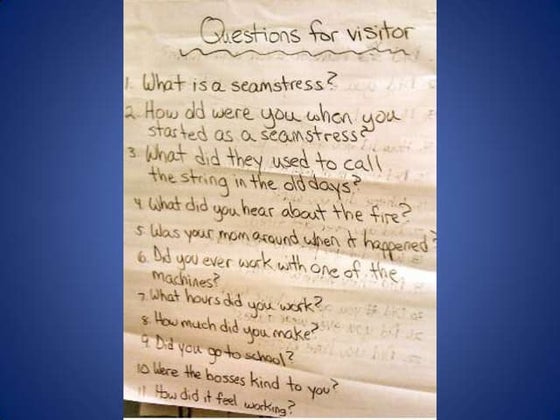 Questions for visitor
1. What is a seamstress?
2. How old were you when you
started as a seamstress?
3. What did they used to call
the string in the old days?
4. What did you hear about the fire?
5. Was your mom around when it happened?
6. Did you ever work with one of the
machines?
7. What hours did you work?
8. How much did you make?
9. Did you go to school?
10. Were the bosses kind to you?
11. How did it feel working?